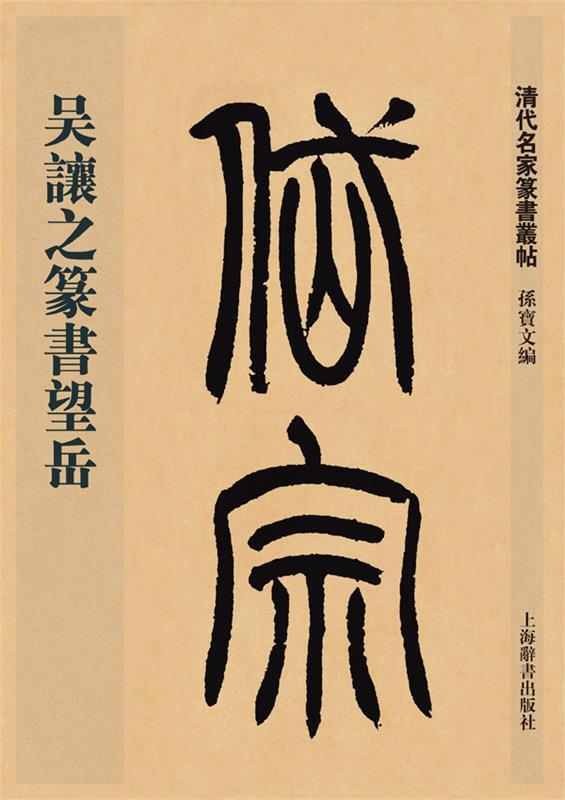 清代名家篆書叢帖
孫寶文編
上海辭書出版社
岱宗
吴讓之篆書望岳